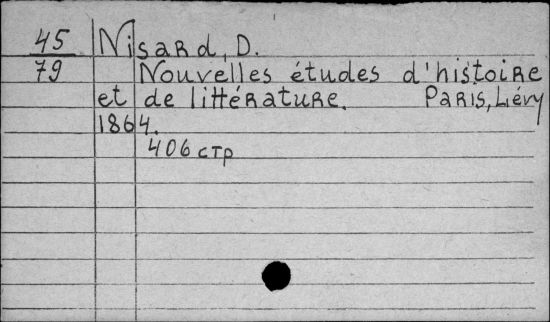 45 Nisard, D.
79 Nouvelles études d'histoire
et de littérature. Paris, Lévy
1864.
406 стр